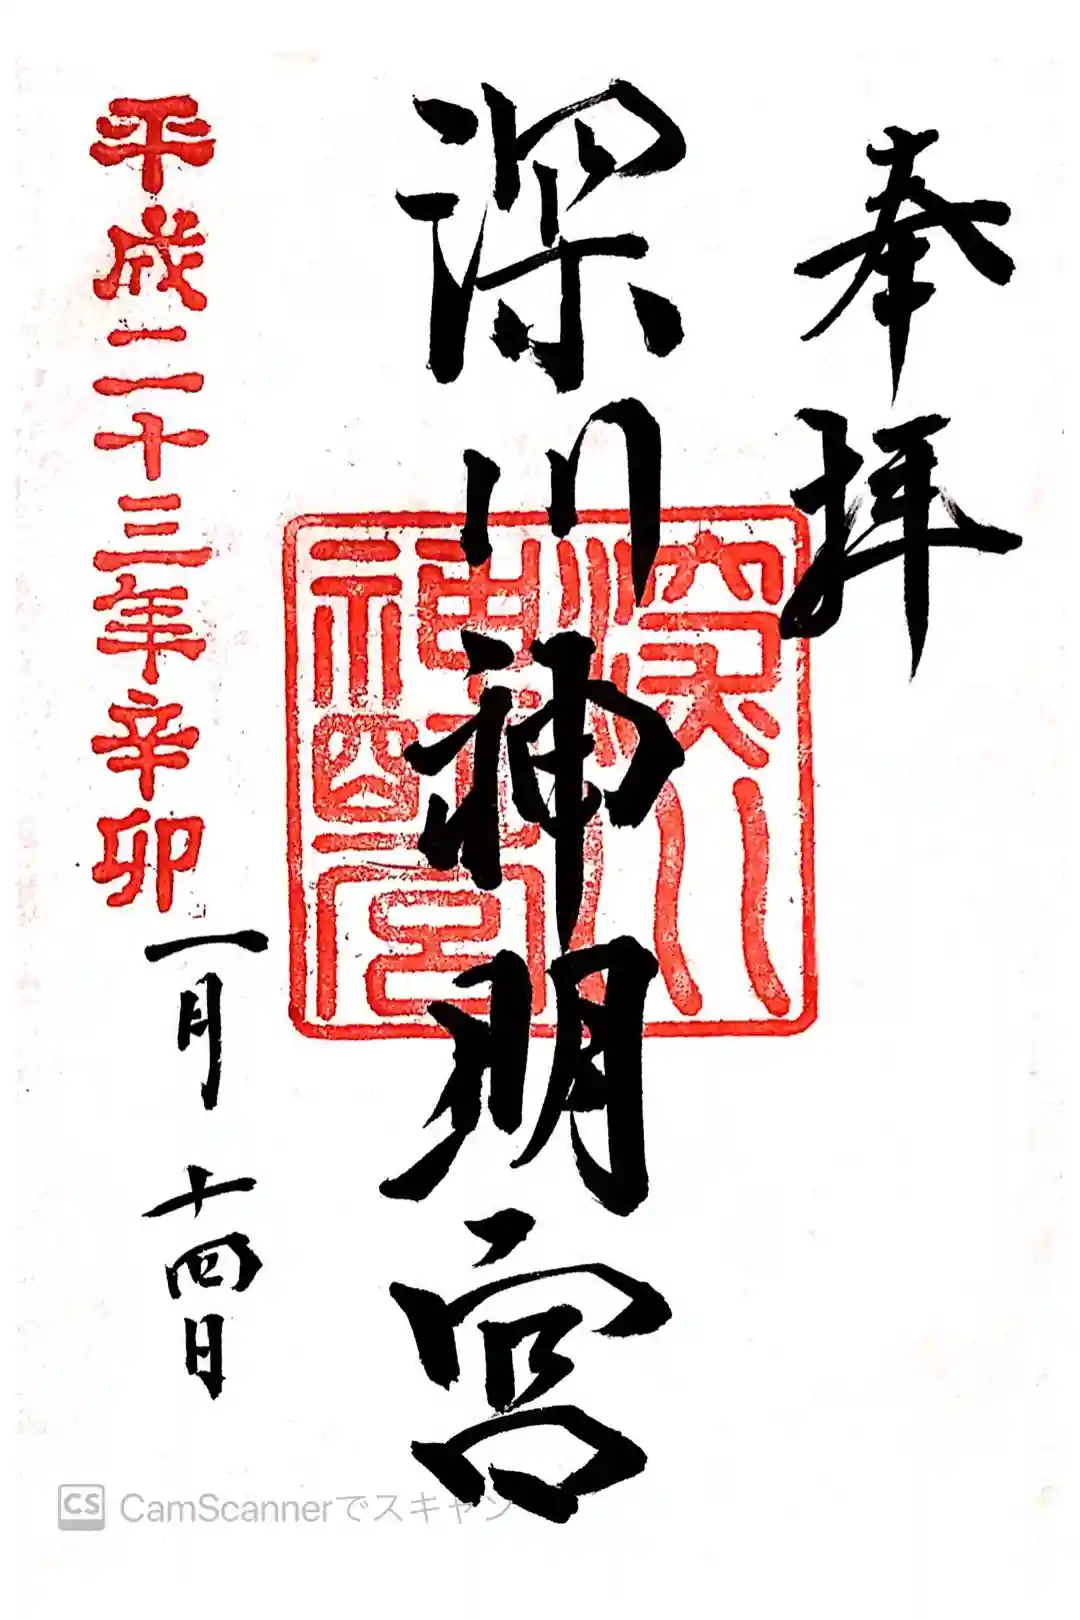 奉拝
深川神明宮
深川神明宮
平成二十三年辛卯
一月十四日
CS CamScannerでスキャン